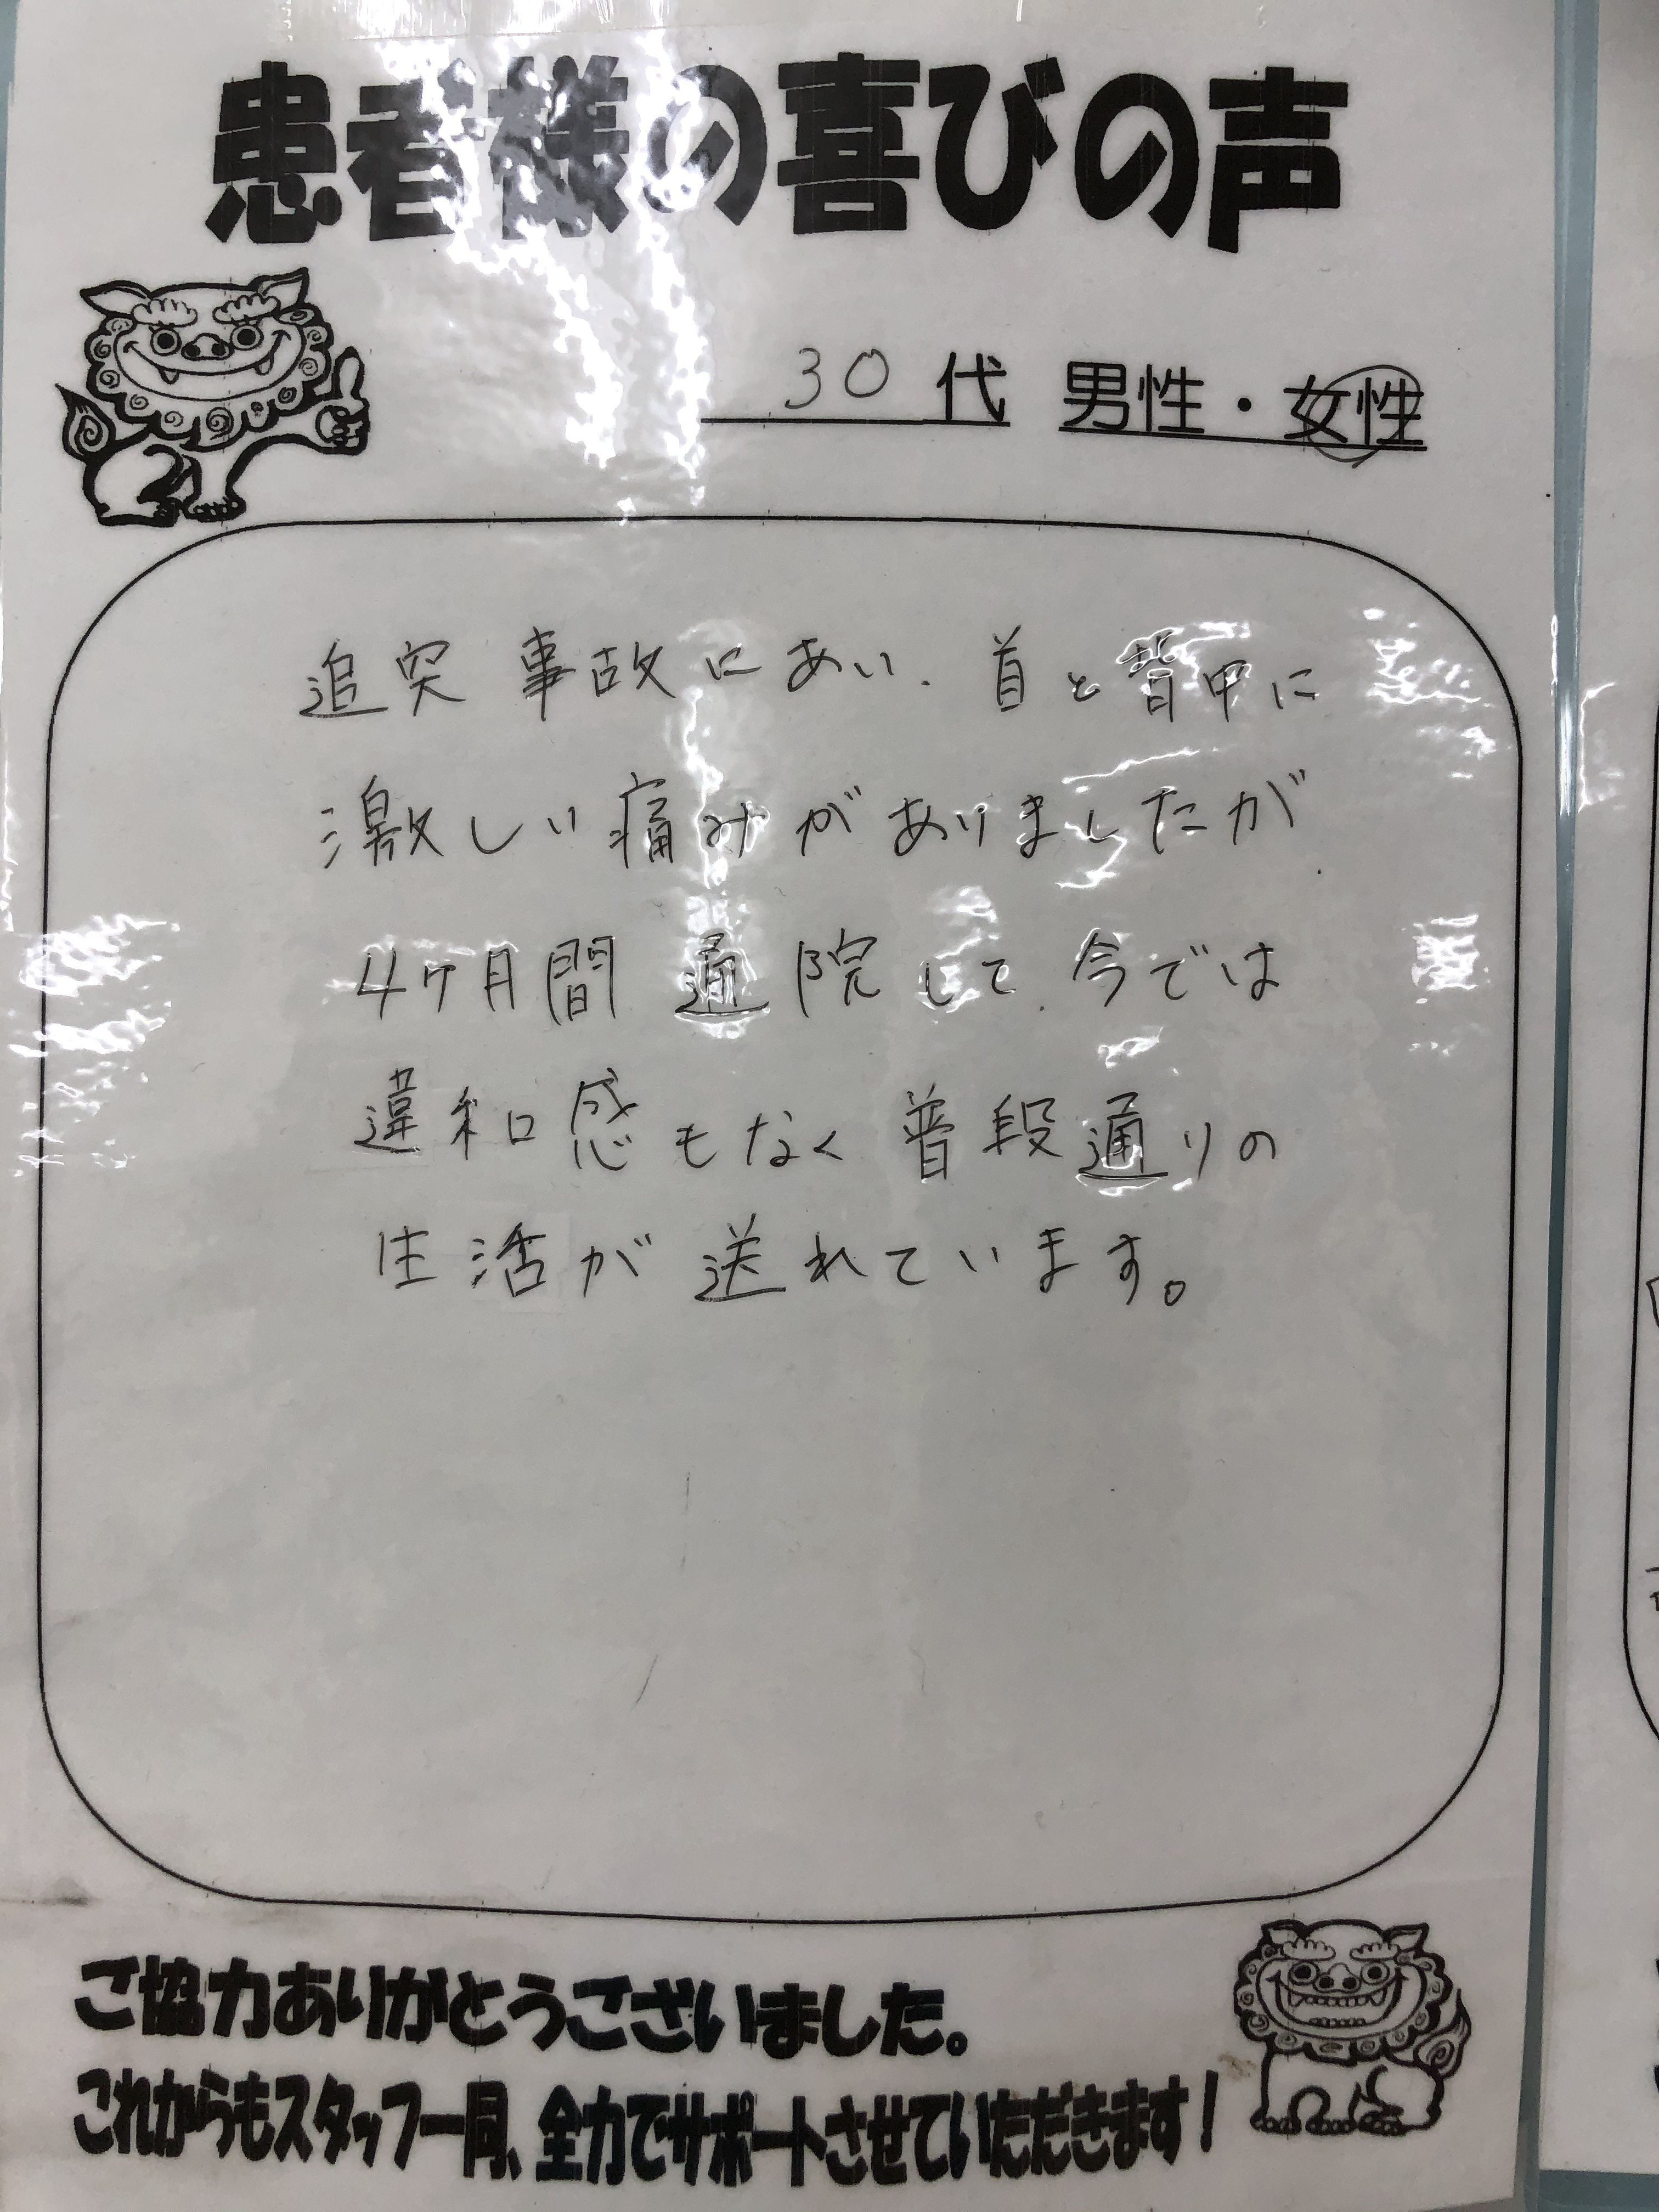 患者様の喜びの声
30代 男性・女性
追突事故にあい、首と背中に
激しい痛みがありましたが、
4ヶ月間通院して、今では
違和感もなく普段通りの
生活が送れています。
ご協力ありがとうございました。
これからもスタッフ一同、全力でサポートさせていただきます!